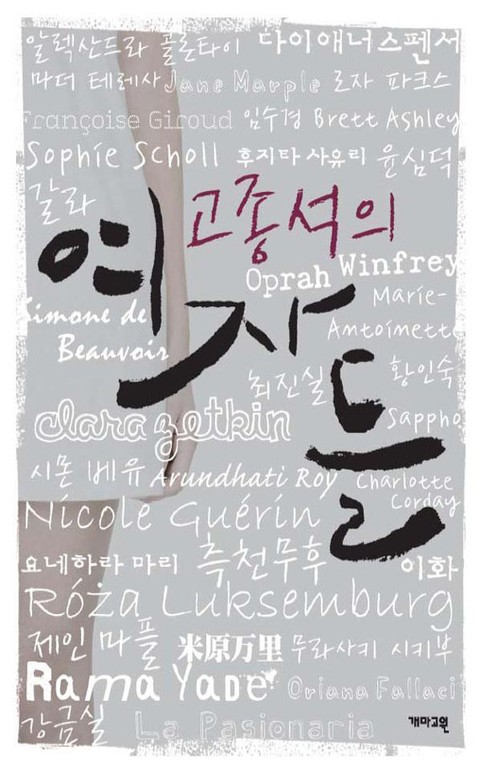 알렉산드라 콜론타이 다이애너스펜서
마더 테레사 Jane Marple 로자 파크스
Françoise Giroud 임수경 Brett Ashley
Sophie Scholl 후지타 사유리 윤심덕
갈라
고종석의
여자들
Oprah Winfrey
Simone de Beauvoir
Marie-Antoinette
최진실 황인숙
clara zetkin Sappho
시몬 베유 Arundhati Roy Charlotte Corday
Nicole Guérin
요네하라 마리 측천무후 이화
Róża Luksemburg
제인 마플 米原万里 무라사키 시키부
Rama Yade Oriana Fallaci
강금실 La Pasionaria
개마고원